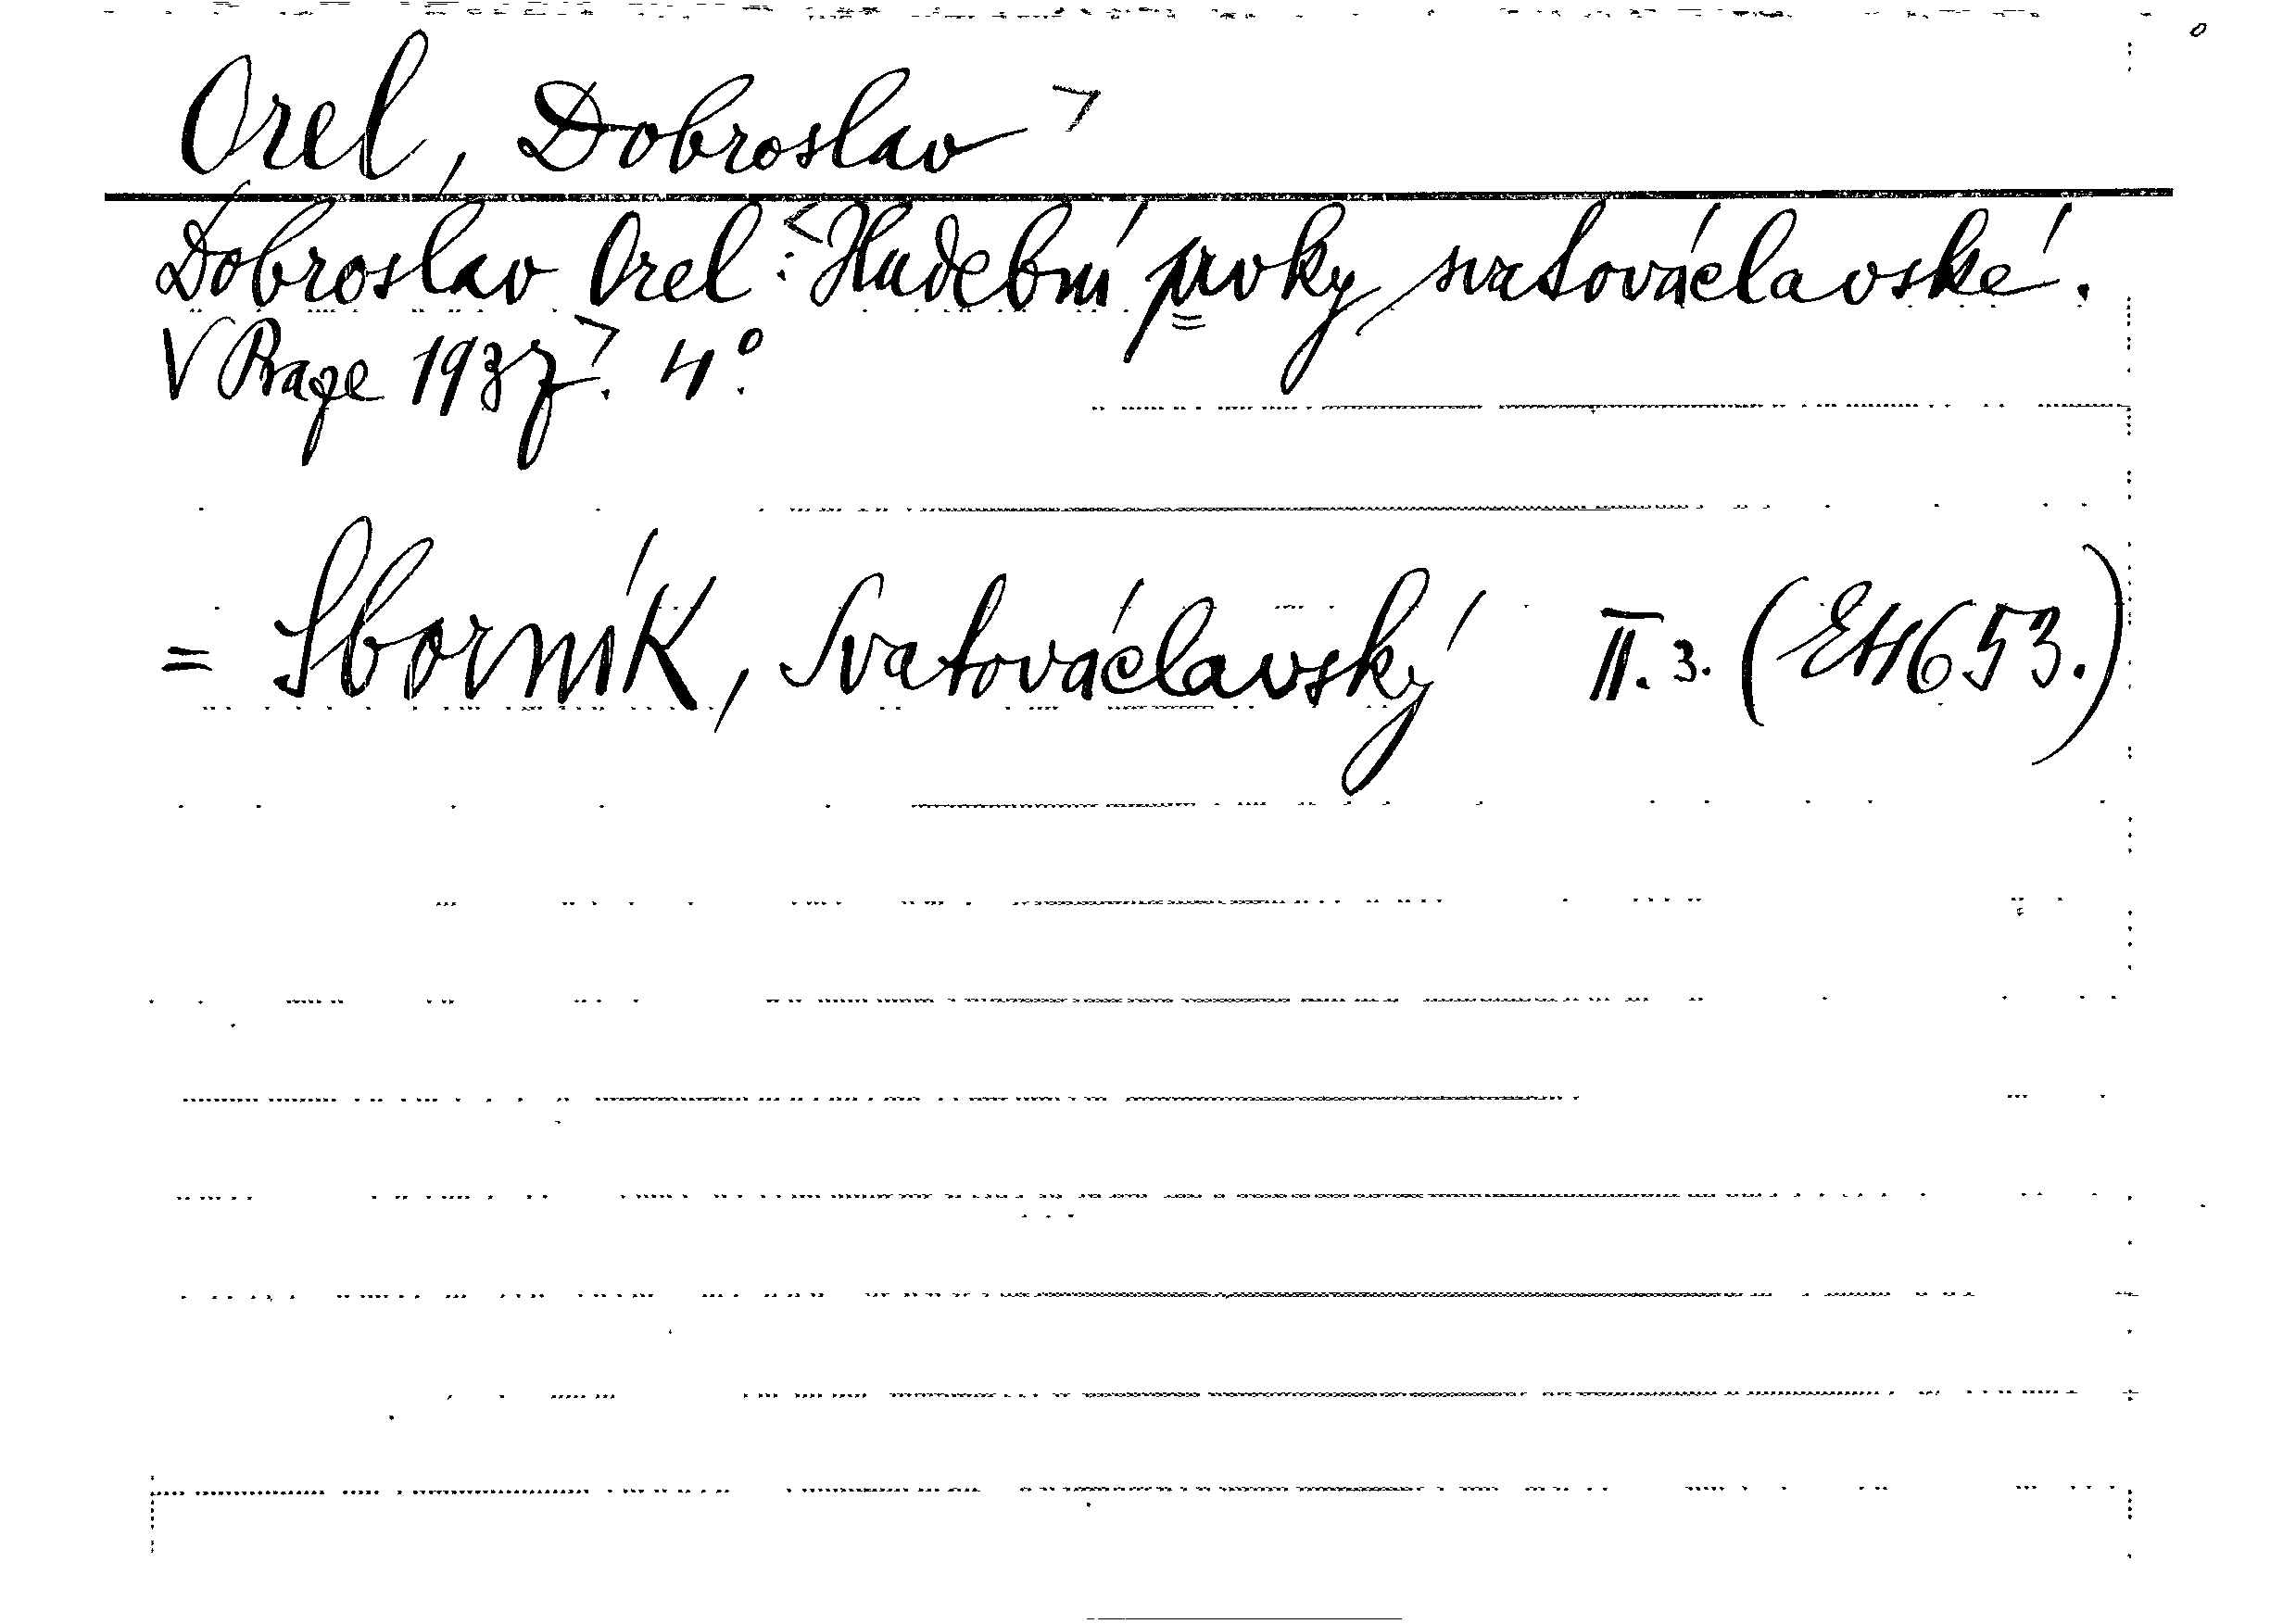 Orel, Dobroslav >
Dobroslav Orel: <Hudební prvky svatováclavské.
V Praze 1937>. 4°.
= Sborník, Svatováclavský II. 3. (EH653.)